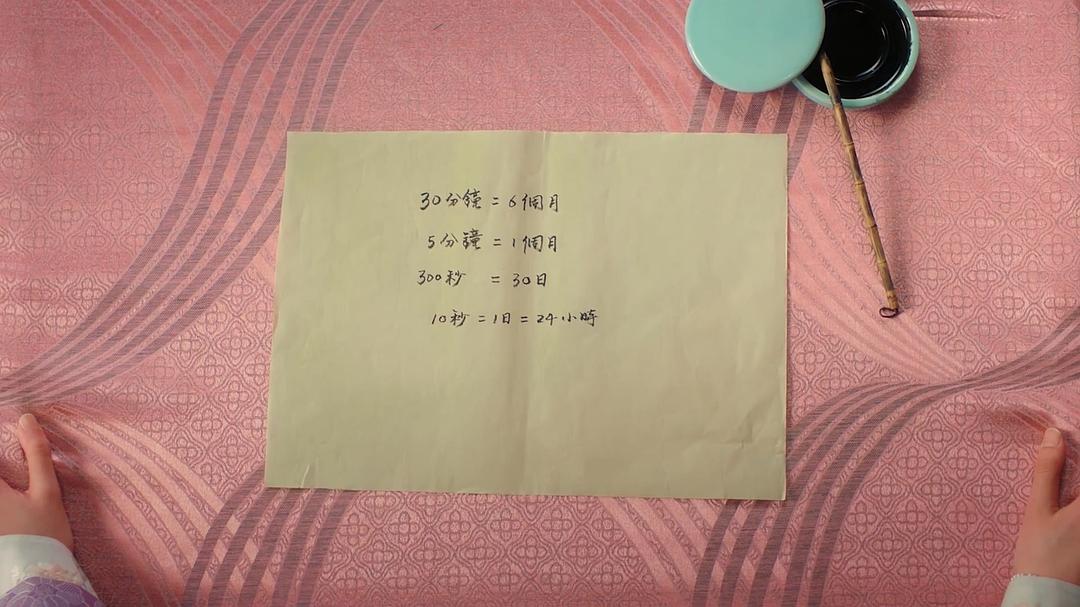 30分鐘 = 6個月
5分鐘 = 1個月
300秒 = 30日
10秒 = 1日 = 24小時